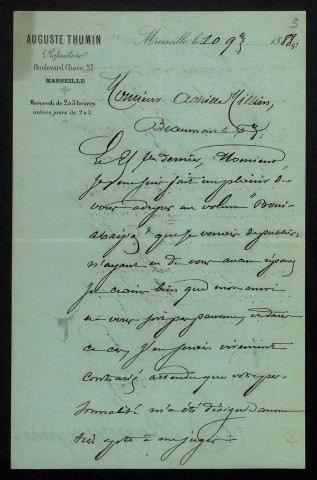 3
AUGUSTE THUMIN
Boulevard Chave, 27
MARSEILLE
Mercredi de 2 à 5 heures
autres jours de 2 à 3
Marseille, le 20 9bre 1888
Monsieur Achille Millien
Beaumont la
Le 25 7bre dernier, Monsieur
je me suis fait un plaisir de
vous adresser un volume Boui-
abaisso que je venais de publier
n'ayant eu de vous aucune réponse
je crains bien que mon envoi
ne vous soit pas parvenu, et dans
ce cas, j'en serais vivement
contrarié attendu que votre per-
sonnalité m'a été désignée comme
très apte à me juger.